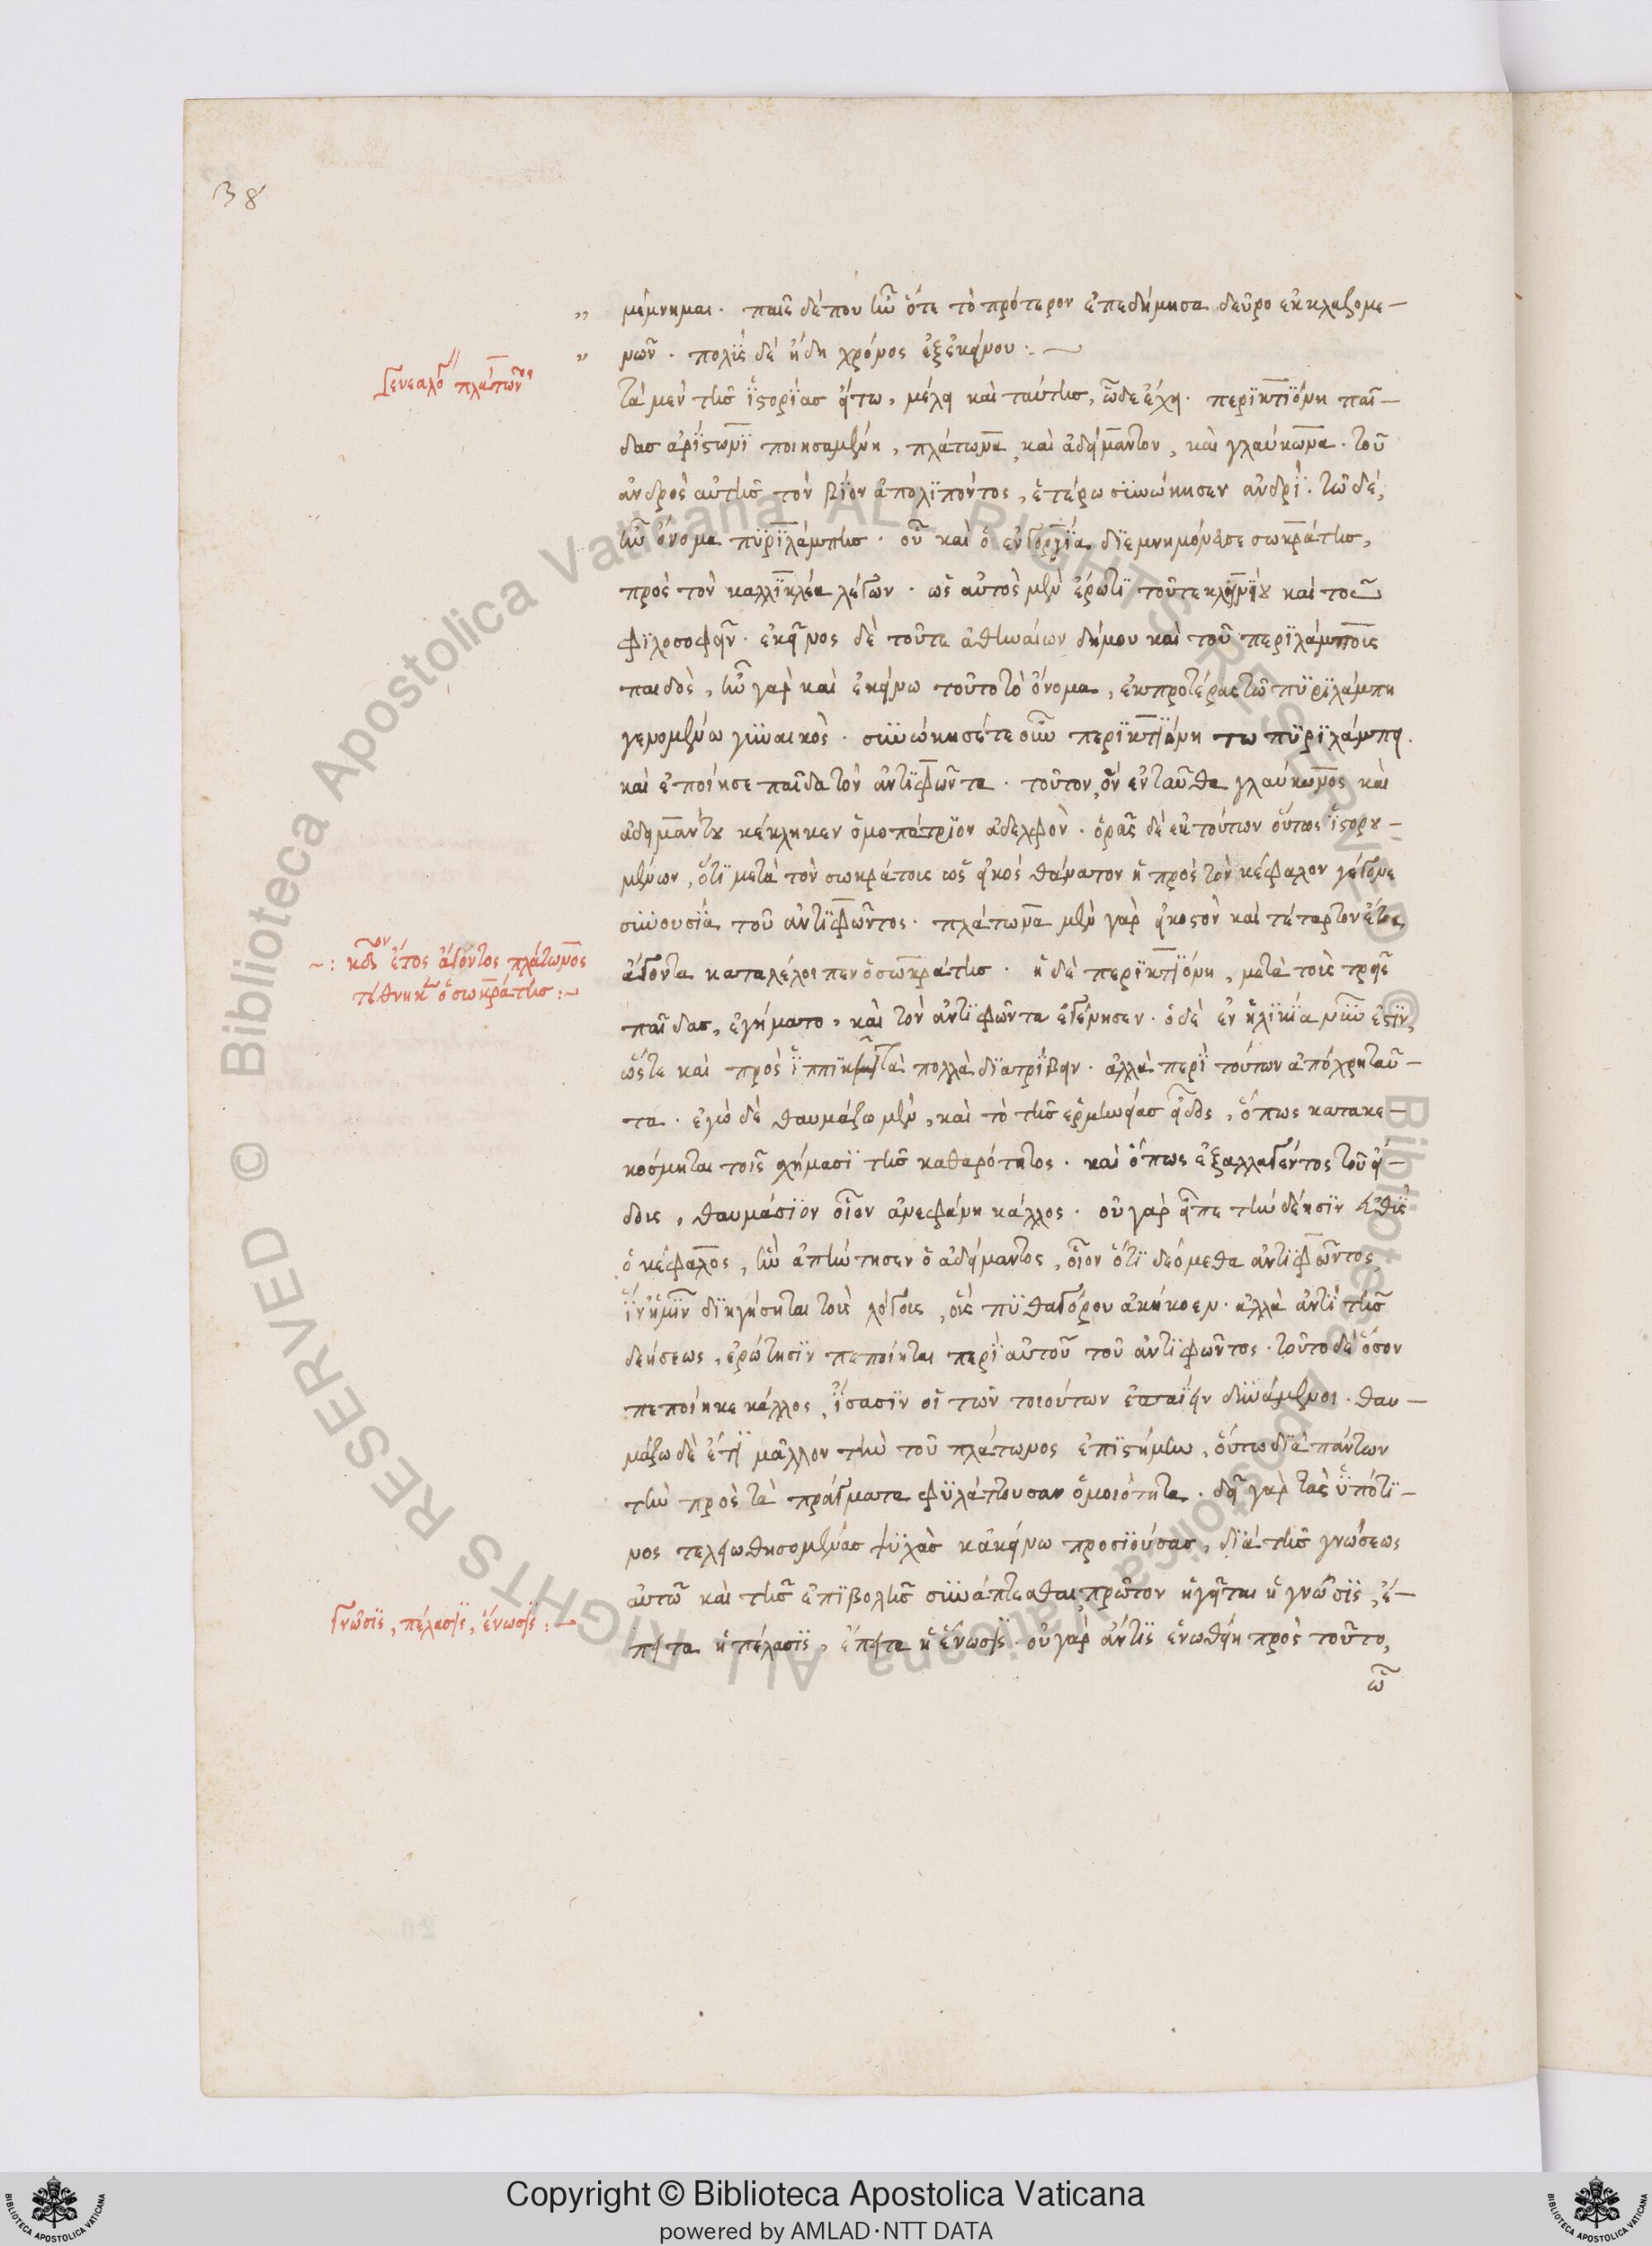 38
μέμνημαι. παῖς δέπου ἦν ὅτε τὸ πρότερον ἐπεδήμησα δεῦρο ἐκ κλαζομε-
νῶν. πολὺς δὲ ἤδη χρόνος ἐξ ἐκείνου:
Γενεαλο πλάτωνος
τὰ μὲν τῆς ἱστορίας εἴτω, μέλει καὶ ταύτης, ὧδε ἔχει. περικτιόνη παῖ-
δας ἀρίστωνι ποιησαμένη, πλάτωνα, καὶ ἀδείμαντον, καὶ γλαύκωνα. τοῦ
ἀνδρὸς αὐτῆς τὸν βίον ἀπολιπόντος, ἑτέρω συνώκησεν ἀνδρί. τῶ δέ,
ἦν ὄνομα πυριλάμπης. οὗ καὶ ὁ ἐν γοργία διεμνημόνευσε σωκράτης,
πρὸς τὸν καλλικλέα λέγων. ὡς αὐτὸς μὲν ἐρώτι τοῦτε κλεινίου καὶ τοῦ
φιλοσοφεῖν. ἐκεῖνος δὲ τοῦτε ἀθηναίων δήμου καὶ τοῦ περιλάμπους
παιδός, ἦν γὰρ καὶ ἐκείνω τοῦτο τὸ ὄνομα, ἐκ προτέρας τῶ πυριλάμπη
γενομένω γυναικός. συνώκησέ τε οὖν περικτιόνη τω πυριλάμπει.
καὶ ἐποίησε παῖδα τὸν ἀντιφῶντα. τοῦτον, ὃν ἐνταῦθα γλαύκωνος καὶ
ἀδειμάντου κέκληκεν ὁμοπάτριον ἀδελφόν. ὁρᾶς δὲ ἐκ τούτων οὕτως ἱστορου-
μένων, ὅτι μετὰ τὸν σωκράτους ὡς εἰκὸς θάνατον ἡ πρὸς τὸν κέφαλον γέγονε
συνουσία τοῦ ἀντιφῶντος. πλάτωνα μὲν γὰρ εἰκοστὸν καὶ τέταρτον ἔτος
κδον ἔτος ἄγοντος πλάτωνος
τέθνηκε ὁ σωκράτης:
ἄγοντα καταλέλοιπεν ὁ σωκράτης. ἡ δὲ περικτιόνη, μετὰ τοὺς τρεῖς
παῖδας, ἐγήματο, καὶ τὸν ἀντιφῶντα ἐγέννησεν. ὁ δὲ ἐν ἡλικία νῦν ἐστὶν,
ὥστε καὶ πρὸς ἱππικῇ τὰ πολλὰ διατρίβειν. ἀλλὰ περὶ τούτων ἀπόχρη ταῦ-
τα. ἐγὼ δὲ θαυμάζω μὲν, καὶ τὸ τῆς ἑρμηνείας εἶδος, ὅπως κατακε-
κόσμηται τοῖς χήμασι τῆς καθαρότητος. καὶ ὅπως ἐξαλλαγέντος τοῦ εἴ-
δους, θαυμάσιον οἷον ἀνεφάνη κάλλος. οὐ γὰρ εἶπε τὴν δέησιν εὐθὺς
ὁ κέφαλος, ἣν ἀπήτησεν ὁ ἀδείμαντος, οἷον ὅτι δεόμεθα ἀντιφῶντος,
ἵν ἡμῖν διηγήσηται τοὺς λόγους, οὓς πυθαγόρου ἀκήκοεν. ἀλλὰ ἀντὶ τῆς
δεήσεως, ἐρώτησιν πεποίηται περὶ αὐτοῦ τοῦ ἀντιφῶντος. τοῦτο δὲ ὅσον
πεποίηκε κάλλος, ἴσασιν οἱ τῶν τοιούτων ἐπαΐειν δυνάμενοι. θαυ-
μάζω δὲ ἔτι μᾶλλον τὴν τοῦ πλάτωνος ἐπιστήμην, οὕτω διὰ πάντων
τὴν πρὸς τὰ πράγματα φυλάττουσαν ὁμοιότητα. δεῖ γὰρ τὰς ὑπό τι-
νος τελειωθησομένας ψυχὰς κἀκείνω προσιούσας, διὰ τῆς γνώσεως
αὐτῶ καὶ τῆς ἐπιβολῆς συνάπτεσθαι, πρῶτον ἡγεῖται ἡ γνῶσις, ἔ-
Γνῶσις, πέλασις, ἕνωσις:
πειτα ἡ πέλασις, ἔπειτα ἡ ἕνωσις. οὐ γὰρ ἄν τις ἑνωθείη πρὸς τοῦτο,
ὧ
Copyright © Biblioteca Apostolica Vaticana
powered by AMLAD·NTT DATA